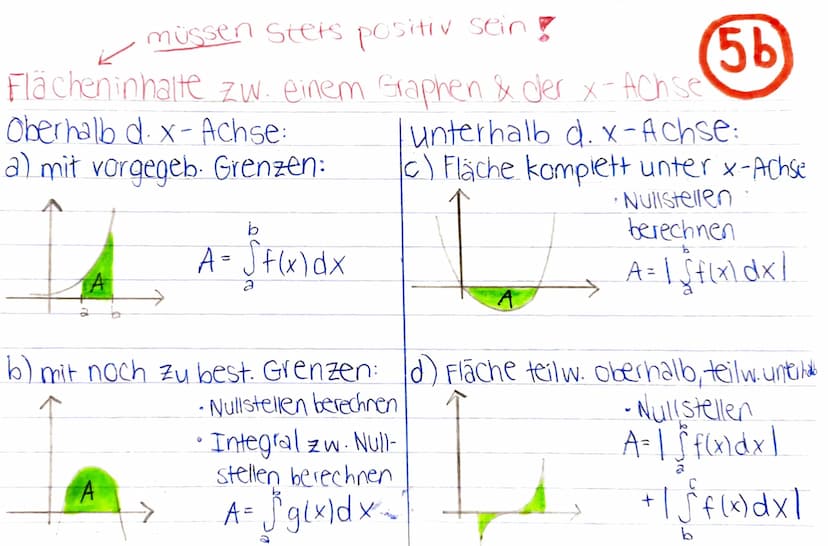 müssen stets positiv sein!
5b
Flächeninhalte zw. einem Graphen & der x-Achse
Oberhalb d. x-Achse:
a) mit vorgegeb. Grenzen:
A
a b
A = ∫ₐᵇ f(x) dx
b) mit noch zu best. Grenzen:
• Nullstellen berechnen
• Integral zw. Null-
stellen berechnen
A
A = ∫ₐᵇ g(x) dx
unterhalb d. x-Achse:
c) Fläche komplett unter x-Achse
• Nullstellen
berechnen
A
A = | ∫ₐᵇ f(x) dx |
d) Fläche teilw. oberhalb, teilw. unterhalb
• Nullstellen
A = | ∫ₐᵇ f(x) dx |
+ | ∫_b^c f(x) dx |